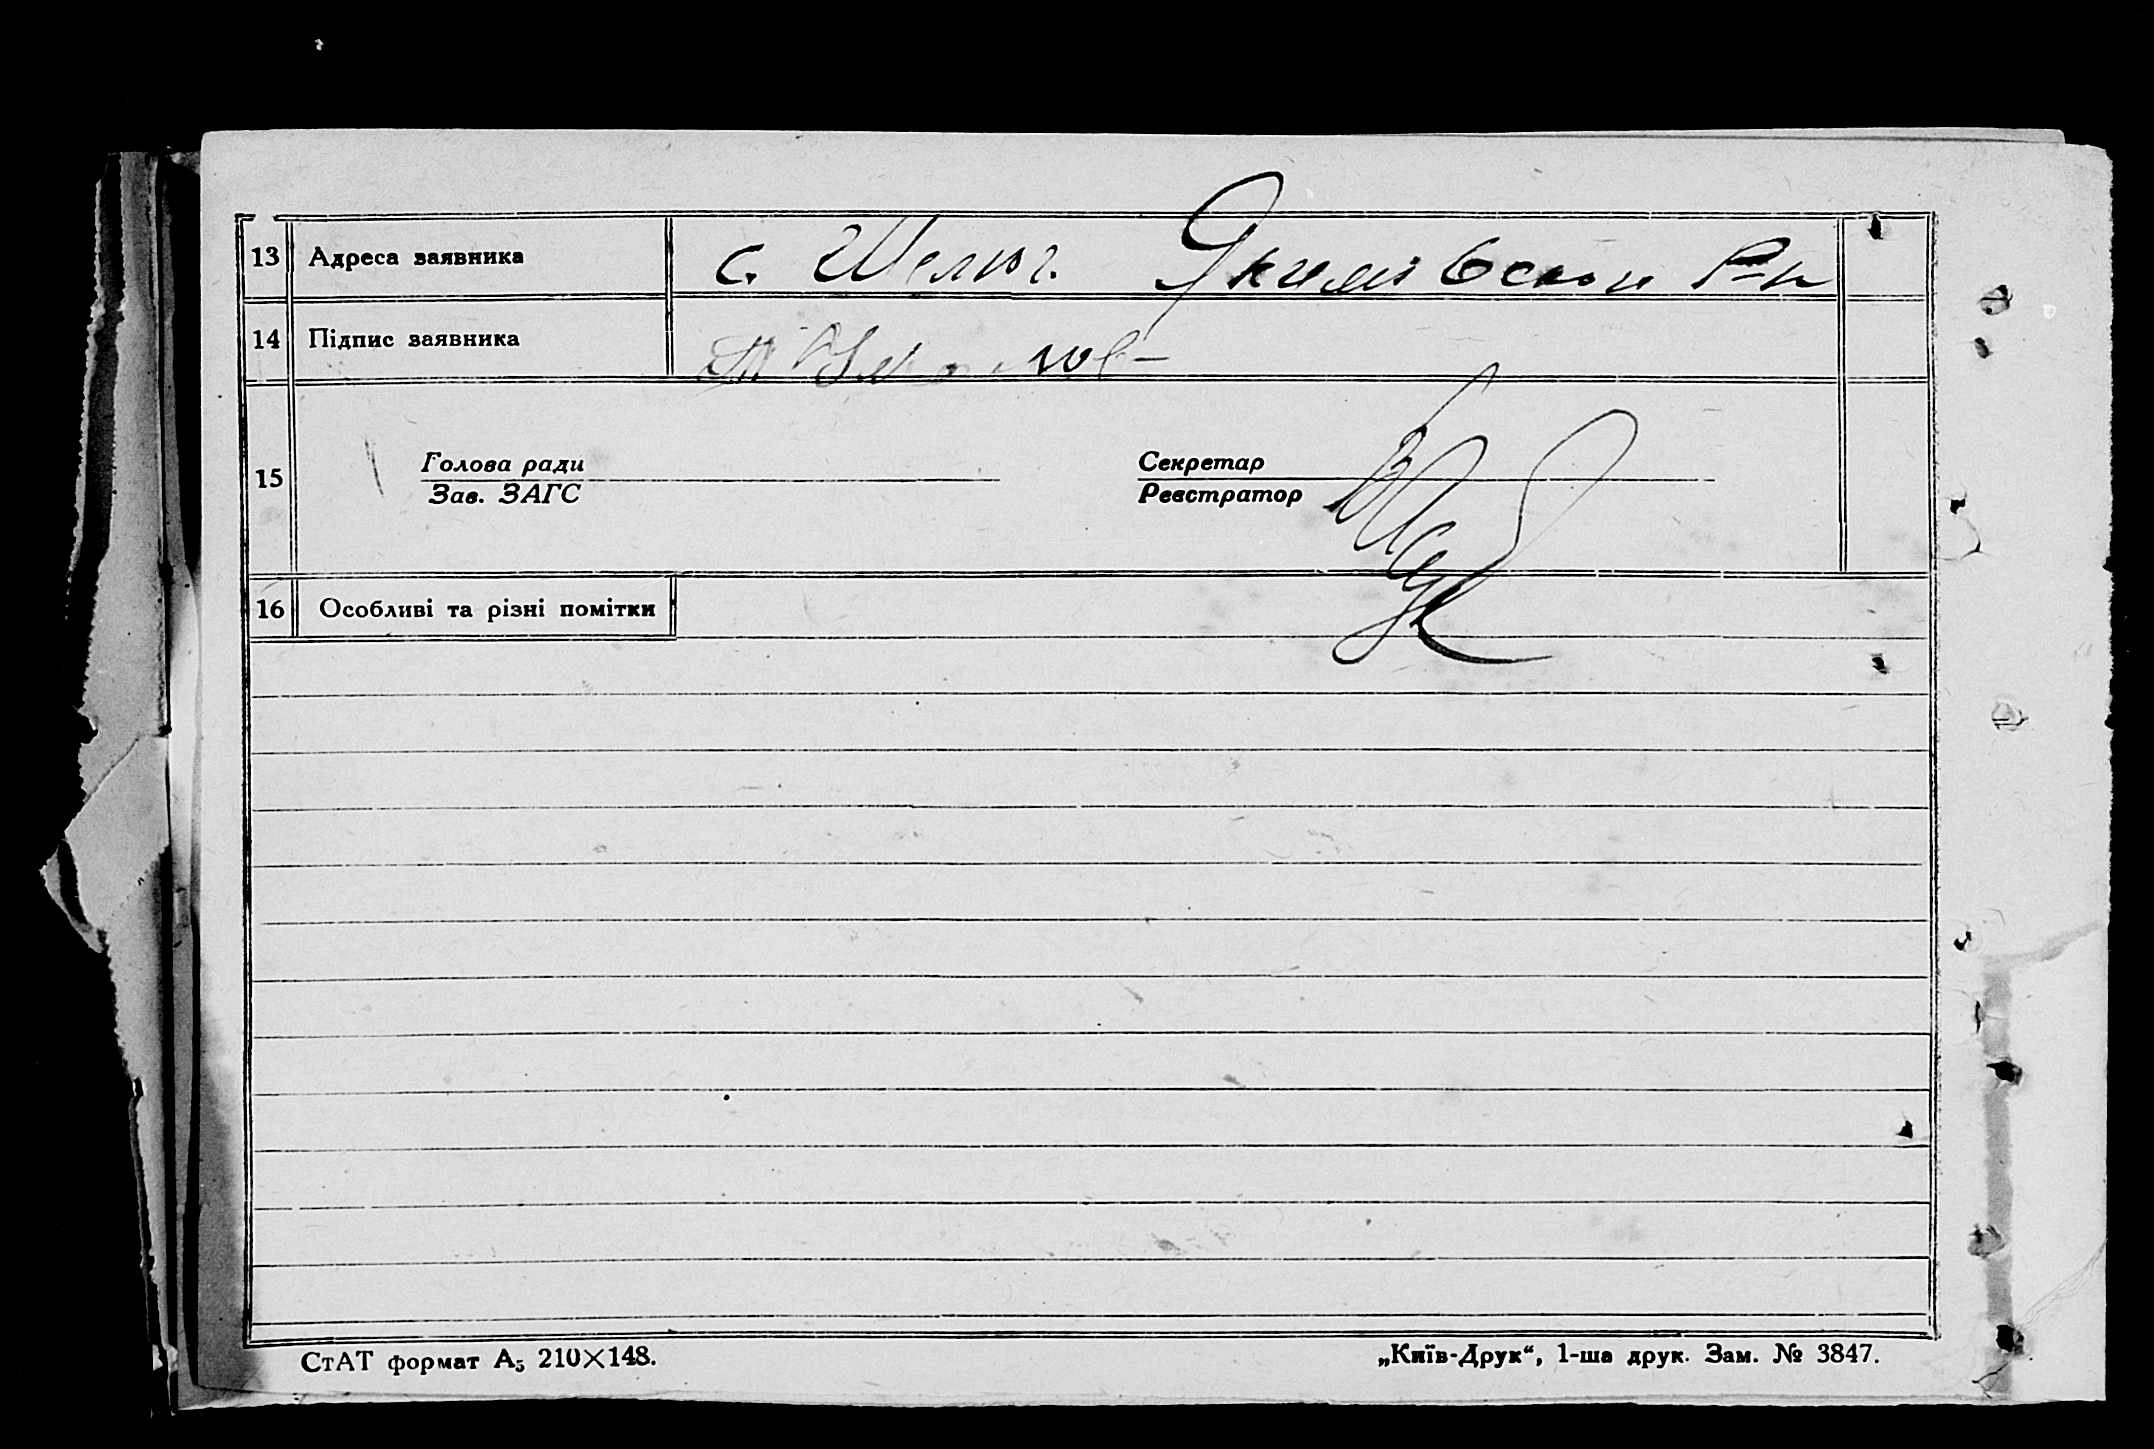 13 Адреса заявника с. Шелюг. Якимовской р-н
14 Підпис заявника
15 Голова ради Секретар
Зав. ЗАГС Реєстратор
16 Особливі та різні помітки
СтАТ формат А₅ 210×148. „Київ-Друк“, 1-ша друк. Зам. № 3847.